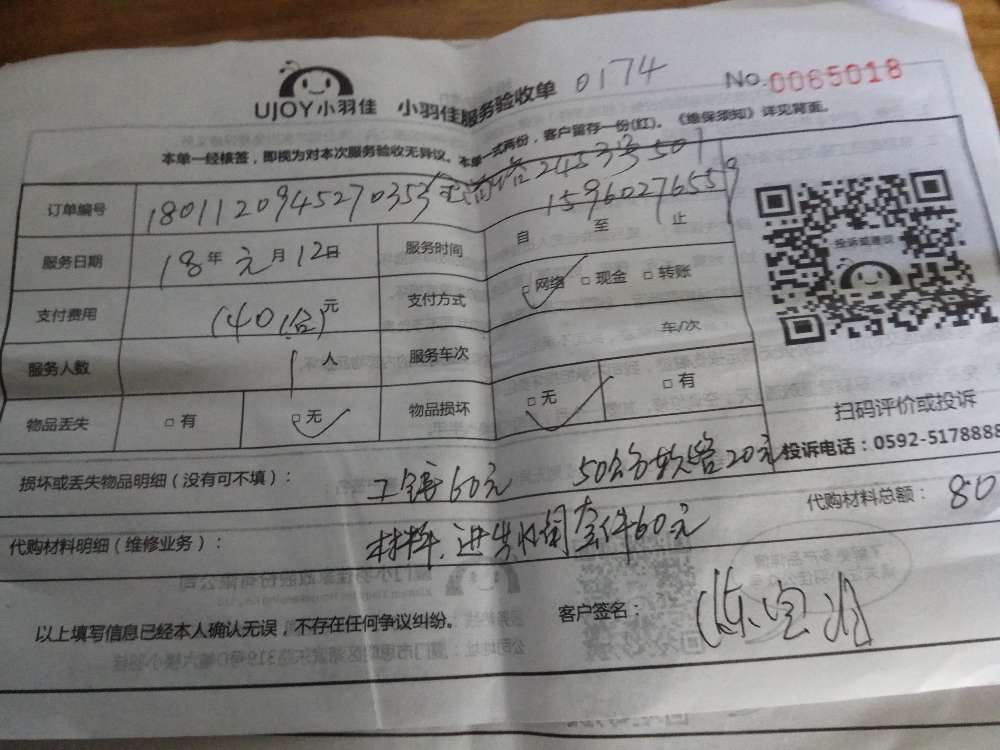 UJOY小羽佳 小羽佳服务验收单 0174 No.0065018
本单一经核签，即视为对本次服务验收无异议。本单一式两份，客户留存一份(红)。《维保须知》详见背面。
2453号501
订单编号 1801120945270353 15960276559
服务日期 18年元月12日 服务时间 自 至 止
支付费用 (40 )元 支付方式 □网络 □现金 □转账
服务人数 1人 服务车次 车/次
物品丢失 □有 □无 物品损坏 □无 □有
投诉或建议
扫码评价或投诉
投诉电话：0592-5178888
损坏或丢失物品明细（没有可不填）： 工钱60元 50公分软管20元
代购材料明细（维修业务）： 材料、进 套件60元 代购材料总额： 80
以上填写信息已经本人确认无误，不存在任何争议纠纷。 客户签名：